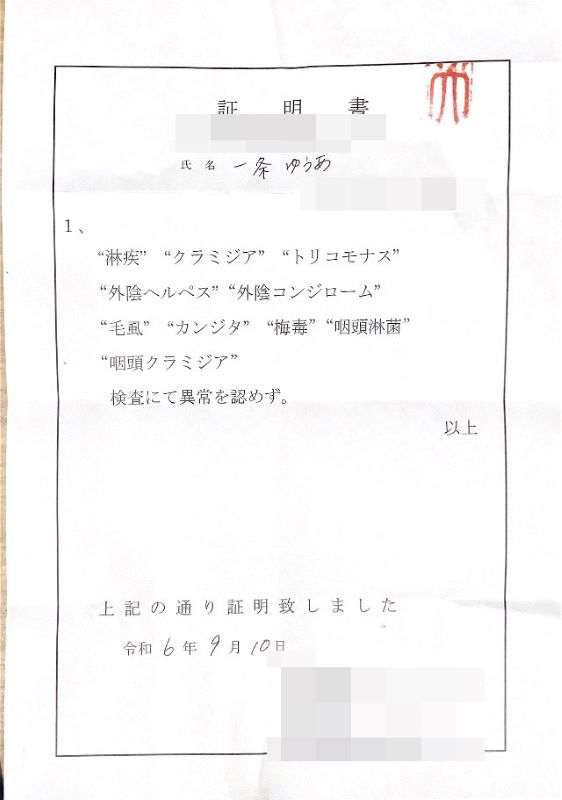 証明書
氏名 一条 ゆうあ
1、
“淋疾” “クラミジア” “トリコモナス”
“外陰ヘルペス” “外陰コンジローム”
“毛虱” “カンジタ” “梅毒” “咽頭淋菌”
“咽頭クラミジア”
検査にて異常を認めず。
以上
上記の通り証明致しました
令和 6 年 9 月 10 日